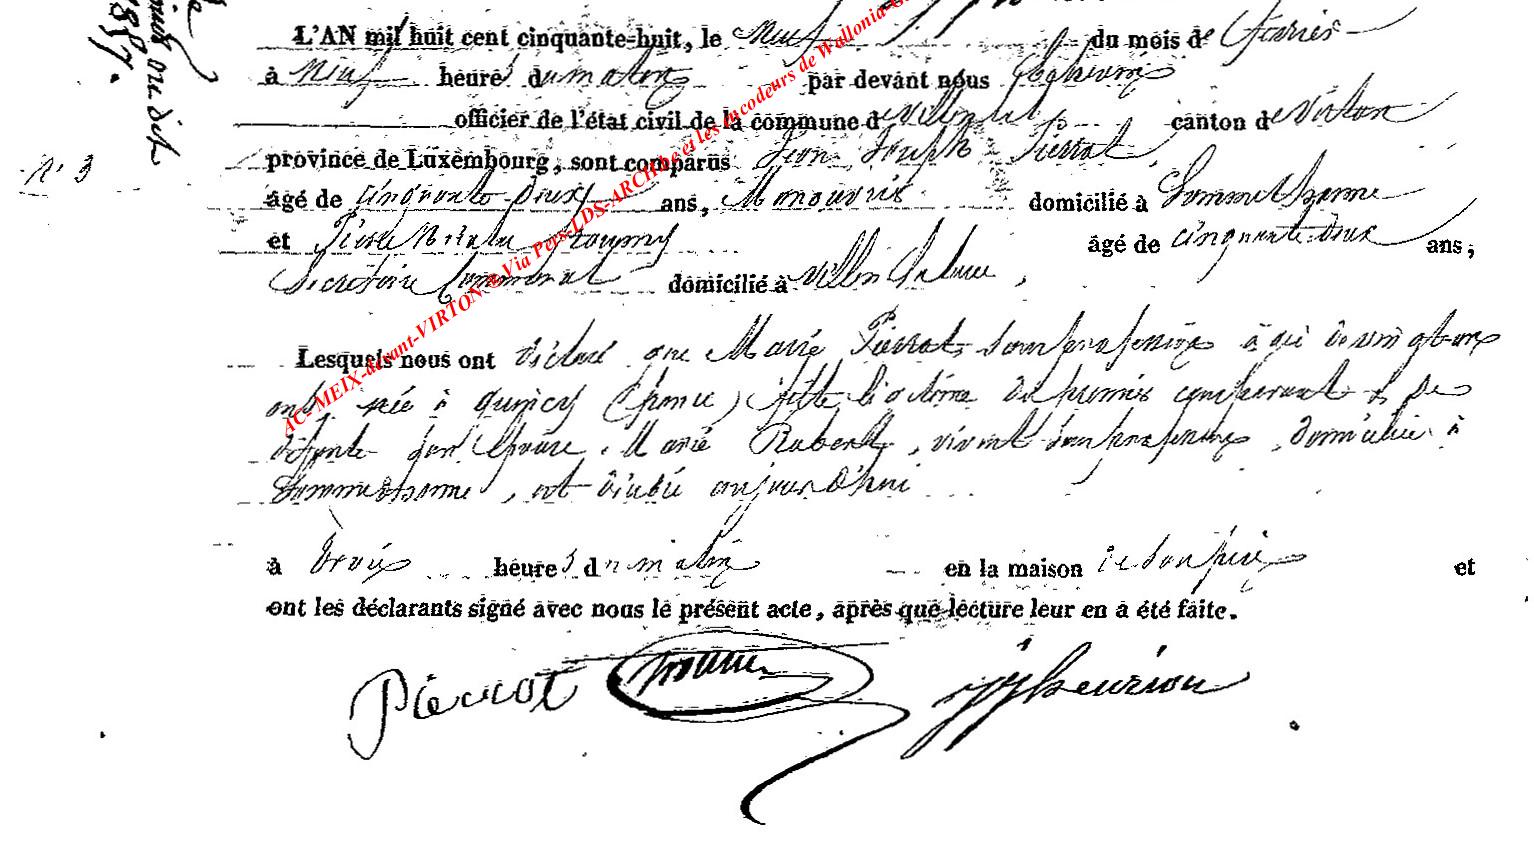 L'AN mil huit cent cinquante-huit, le Neuf du mois de fevrier
à Neuf heures du matin par devant nous
officier de l'état civil de la commune de canton de Virton
province de Luxembourg, sont comparus Jean Joseph Pierrot,
âgé de cinquante deux ans, Manouvrier domicilié à Sommethonne
et Pierre Nicolas âgé de cinquante deux ans,
Secrétaire Communal domicilié à Villers la Loue,
Lesquels nous ont déclaré que Marie Pierrot, sans profession, âgée de vingt
ans, née à Quincy (france) fille légitime du premier comparant & de
défunte son épouse, Marie Robert, vivant sans profession, domiciliée à
Sommethonne, est décédée aujourd'hui
à trois heures du matin en la maison de son père et
ont les déclarants signé avec nous le présent acte, après que lecture leur en a été faite.
Pierrot
N° 3
ou dit
1857.
AC-MEIX-devant-VIRTON & Via Pers-LDS-ARCHbe et les encodeurs de Wallonia-G